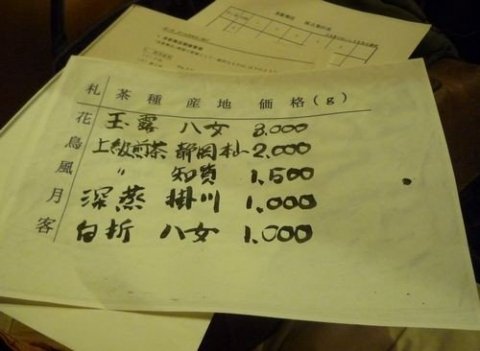 札 茶種 産地 価格(g)
花 玉露 八女 3,000
鳥 上級煎茶 静岡本山 2,000
風 〃 知覧 1,500
月 深蒸 掛川 1,000
客 白折 八女 1,000